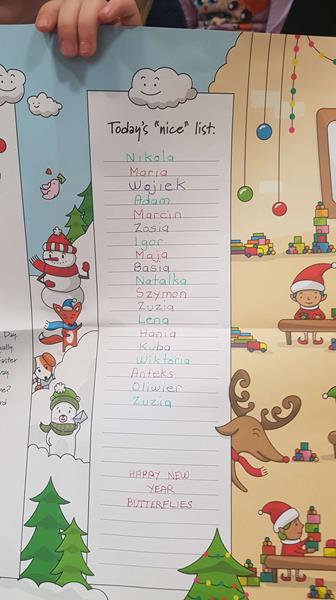 Today's "nice" list:
Nikola
Maria
Wojlek
Adam
Marcin
Zosia
Igor
Maja
Basia
Natalka
Szymon
Zuzia
Lena
Hania
Kuba
Wiktoria
Anteks
Oliwier
Zuzia
HAPPY NEW
YEAR
BUTTERFLIES
Day